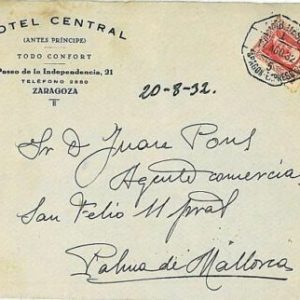 HOTEL CENTRAL
(ANTES PRÍNCIPE)
TODO CONFORT
Paseo de la Independencia, 21
TELÉFONO 2880
ZARAGOZA
20-8-32.
Sr D Juan Pons
Agente comercial
San Felio 11 pral
Palma de Mallorca